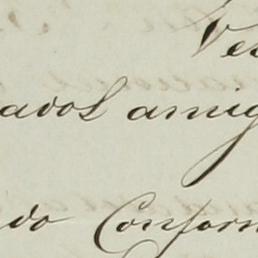 Ve
avos amig
do Conform